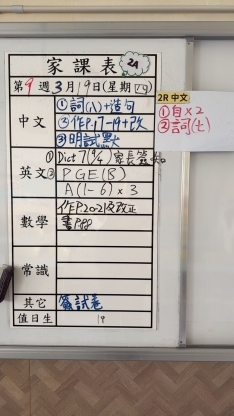 家課表 2A
第9週3月19日(星期四)
中文
①詞(八)+造句
②作P.17-19+改
③明試默
英文
① Dict 7 (9/4) 家長簽
② PGE(B)
A(1-6)×3
數學
作P.20-21及改正
書P.88
常識
其它
簽試卷
值日生
19
2R 中文
①自×2
②詞(七)